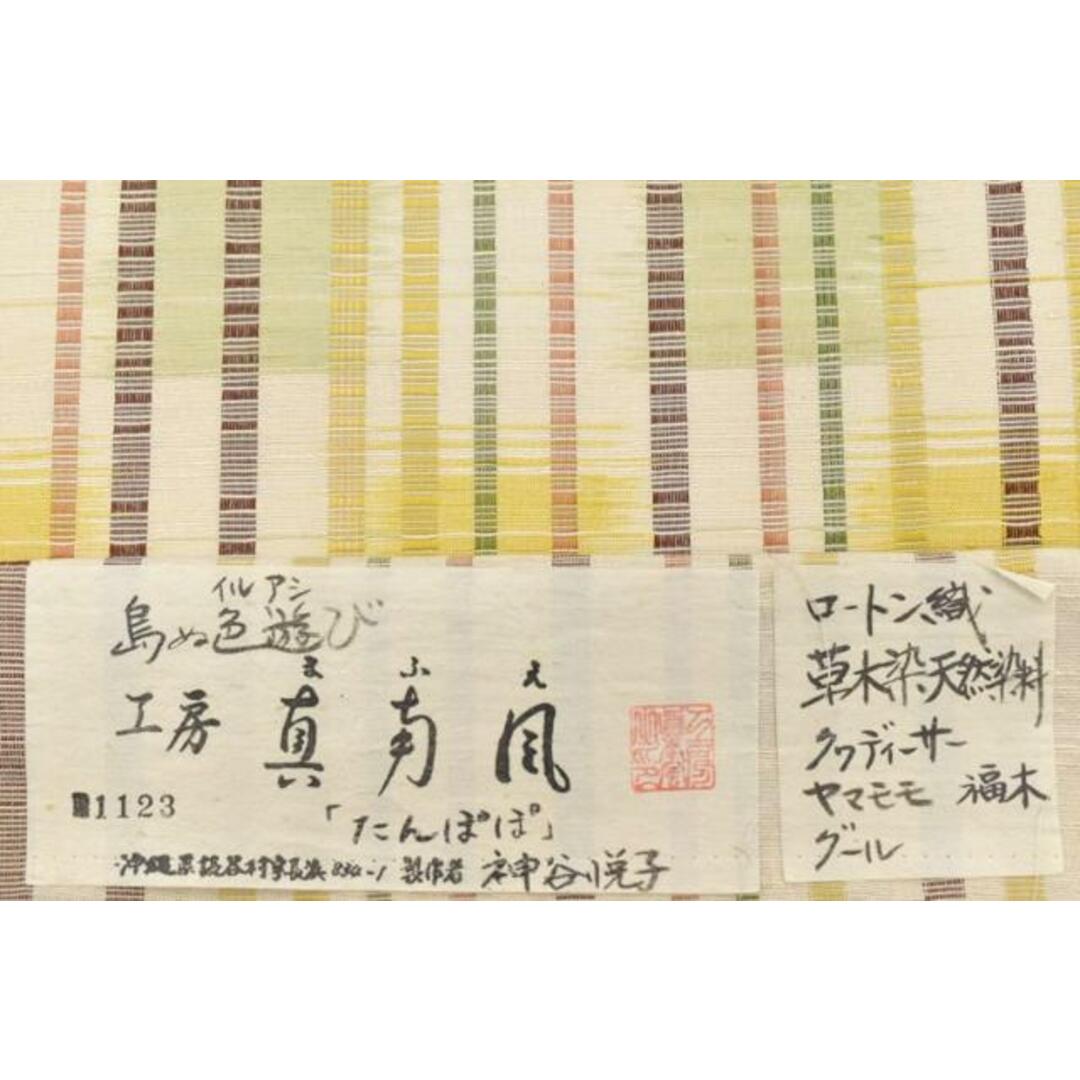 イル アシ
島ぬ色遊び
ま ふ え
工房 真南風
1123
「たんぽぽ」
沖縄県読谷村字長浜 製作者 神谷悦子
ロートン織
草木染、天然染料
クワディーサー
ヤマモモ 福木
グール